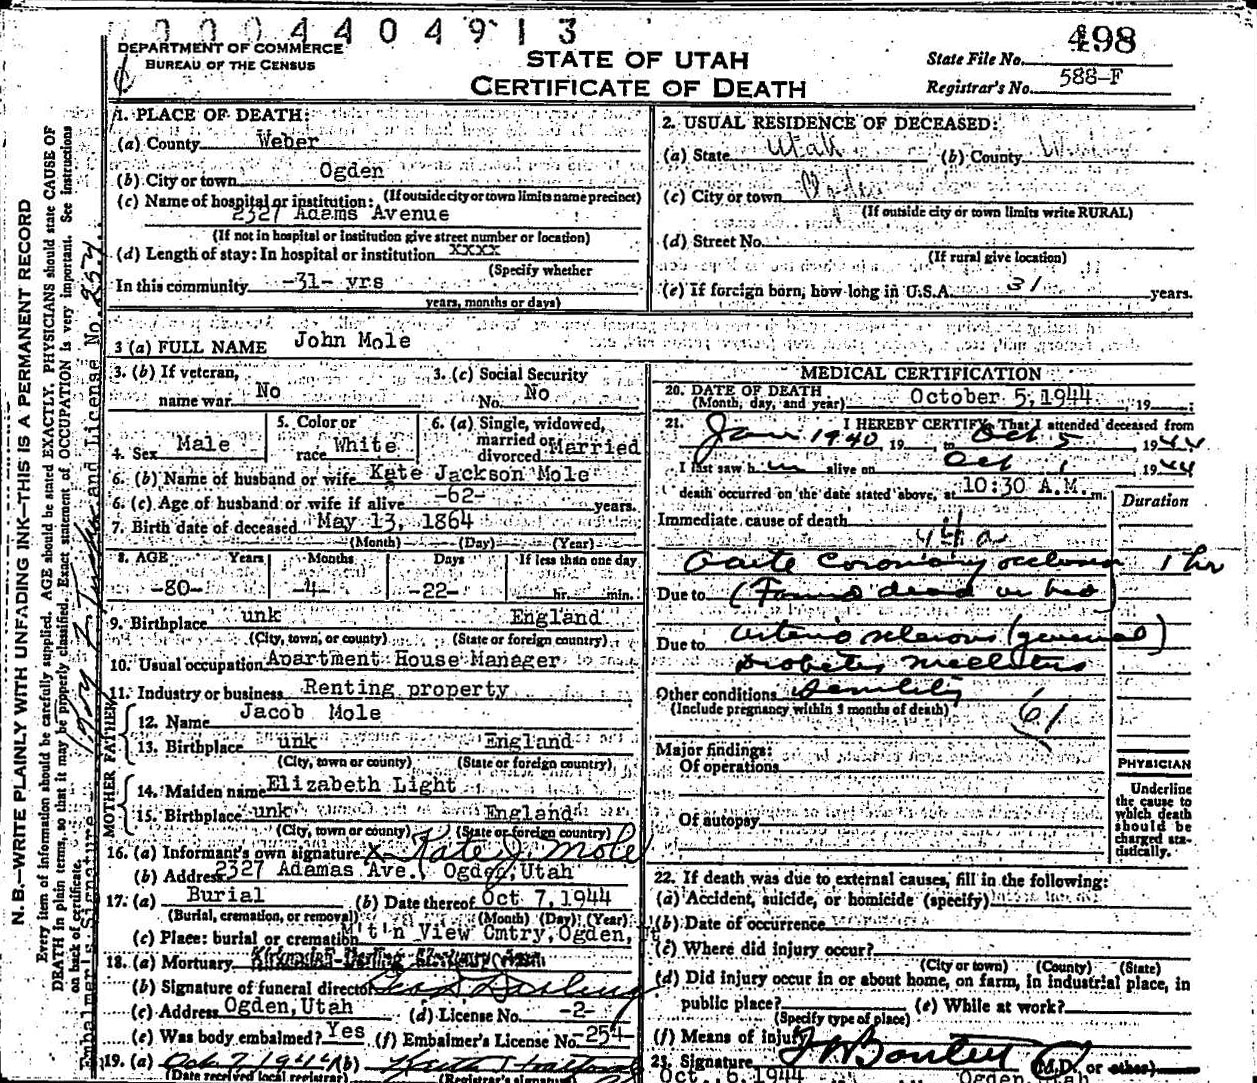 0004404913
DEPARTMENT OF COMMERCE
BUREAU OF THE CENSUS
STATE OF UTAH
CERTIFICATE OF DEATH
State File No. 498
Registrar's No. 588-F
N. B.—WRITE PLAINLY WITH UNFADING INK—THIS IS A PERMANENT RECORD
Every item of information should be carefully supplied. AGE should be stated EXACTLY. PHYSICIANS should state CAUSE OF
DEATH in plain terms, so that it may be properly classified. Exact statement of OCCUPATION is very important. See instructions
on back of certificate.
Embalmer's Signature and License No. 254
1. PLACE OF DEATH:
(a) County Weber
(b) City or town Ogden
(If outside city or town limits name precinct)
(c) Name of hospital or institution:
2327 Adams Avenue
(If not in hospital or institution give street number or location)
(d) Length of stay: In hospital or institution xxxx
(Specify whether
In this community -31- yrs
years, months or days)
2. USUAL RESIDENCE OF DECEASED:
(a) State Utah (b) County
(c) City or town Ogden
(If outside city or town limits write RURAL)
(d) Street No.
(If rural give location)
(e) If foreign born, how long in U.S.A. 31 years.
3 (a) FULL NAME John Mole
3. (b) If veteran,
name war No
3. (c) Social Security
No. No
4. Sex Male
5. Color or
race White
6. (a) Single, widowed,
married or
divorced Married
6. (b) Name of husband or wife Kate Jackson Mole
6. (c) Age of husband or wife if alive -62- years.
7. Birth date of deceased May 13, 1864
(Month) (Day) (Year)
8. AGE Years Months Days If less than one day
-80- -4- -22- hr. min.
9. Birthplace unk England
(City, town, or county) (State or foreign country)
10. Usual occupation Apartment House Manager
11. Industry or business Renting property
FATHER
12. Name Jacob Mole
13. Birthplace unk England
(City, town or county) (State or foreign country)
MOTHER
14. Maiden name Elizabeth Light
15. Birthplace unk England
(City, town or county) (State or foreign country)
16. (a) Informant's own signature x Kate J. Mole
(b) Address 2327 Adamas Ave. Ogden, Utah
17. (a) Burial (b) Date thereof Oct 7, 1944
(Burial, cremation, or removal) (Month) (Day) (Year)
(c) Place: burial or cremation M't'n View Cmtry, Ogden, Ut
18. (a) Mortuary
(b) Signature of funeral director
(c) Address Ogden, Utah (d) License No. -2-
(e) Was body embalmed? Yes (f) Embalmer's License No. -254-
19. (a) Oct 7 1944 (b)
(Date received local registrar) (Registrar's signature)
MEDICAL CERTIFICATION
20. DATE OF DEATH
(Month, day, and year) October 5, 1944, 19
21. I HEREBY CERTIFY, That I attended deceased from
Jan 1940, 19 to Oct 5 1944
I last saw him alive on Oct 1 1944
death occurred on the date stated above, at 10:30 A.M. m.
Duration
Immediate cause of death
94a
Acute Coronary occlusion 1 hr
Due to (Found dead in bed)
Due to Arterio sclerosis (general)
Diabetes Mellitus
Other conditions Senility
(Include pregnancy within 3 months of death)
61
Major findings:
Of operations
Of autopsy
PHYSICIAN
Underline
the cause to
which death
should be
charged sta-
tistically.
22. If death was due to external causes, fill in the following:
(a) Accident, suicide, or homicide (specify)
(b) Date of occurrence
(c) Where did injury occur?
(City or town) (County) (State)
(d) Did injury occur in or about home, on farm, in industrial place, in
public place? (e) While at work?
(Specify type of place)
(f) Means of injury
23. Signature (M.D. or other)
Oct. 6, 1944 Ogden, Utah